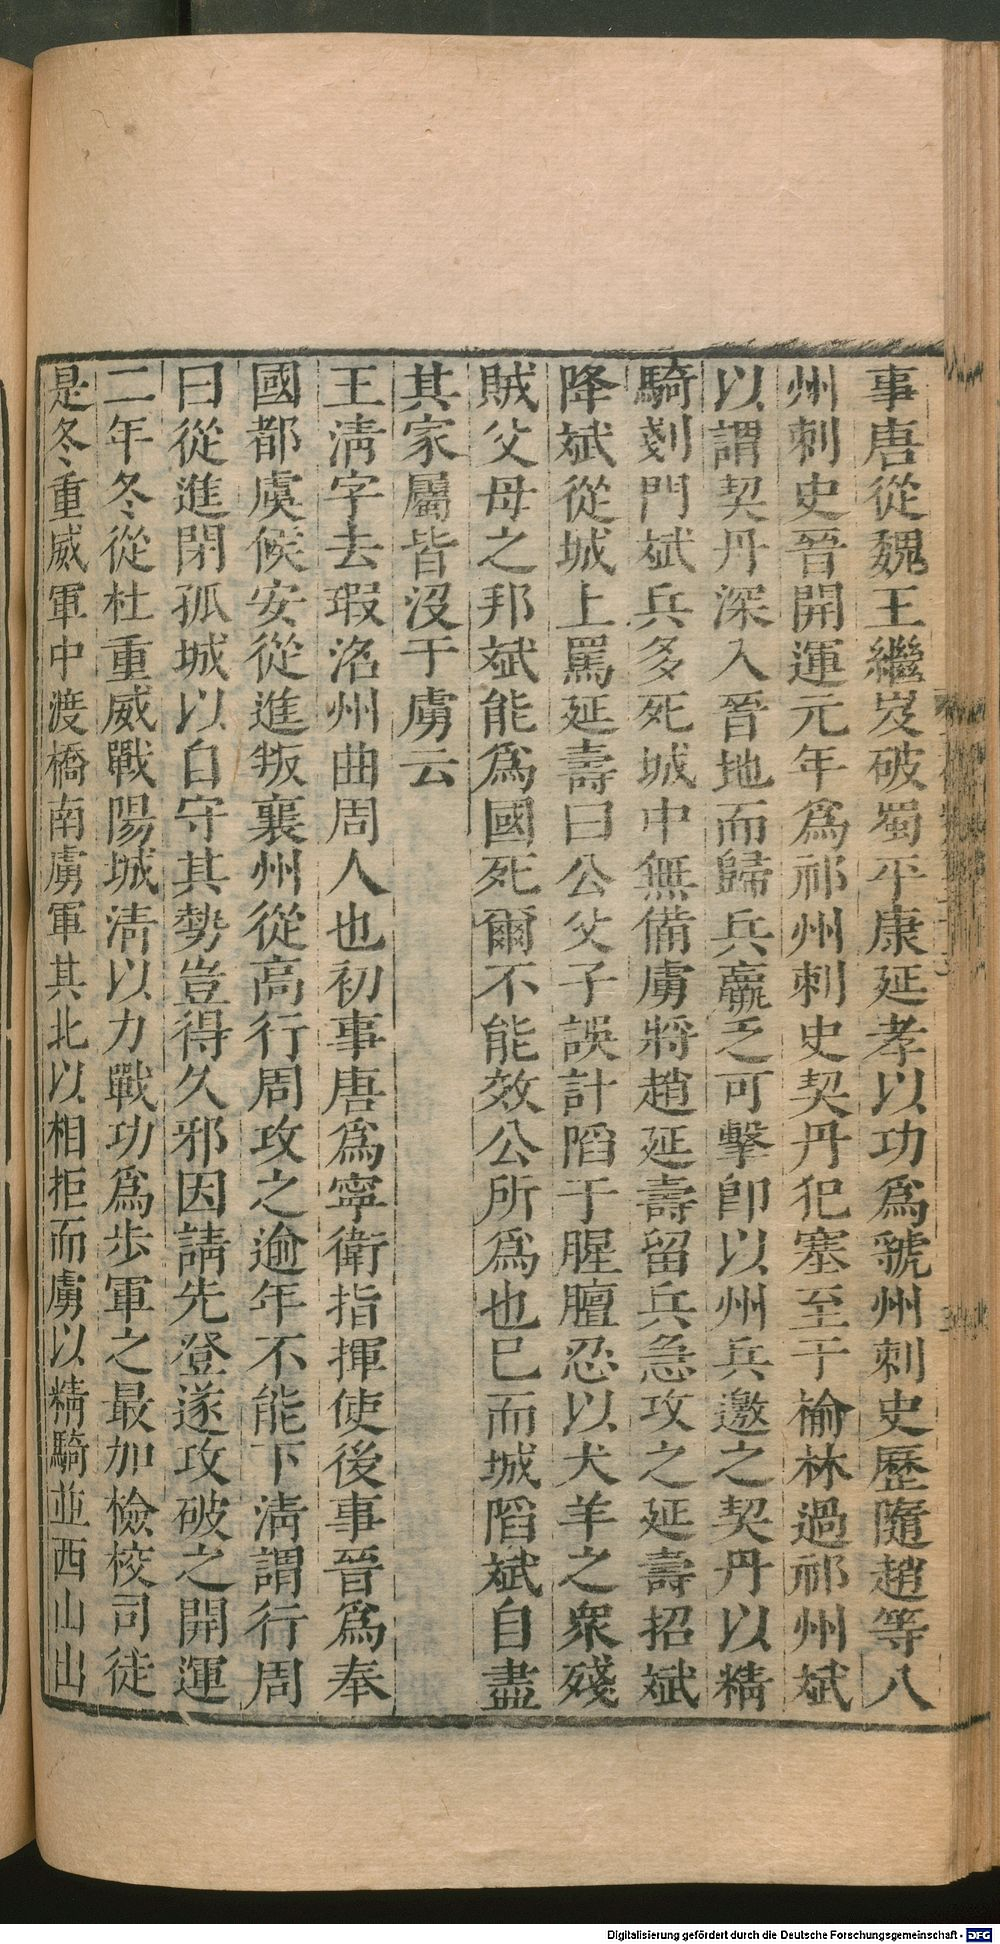 事唐從魏王繼岌破蜀平康延孝以功爲虢州刺史歷隨趙等八
州刺史晉開運元年爲祁州刺史契丹犯塞至于榆林過祁州斌
以謂契丹深入晉地而歸兵羸乏可擊卽以州兵邀之契丹以精
騎剗門斌兵多死城中無備虜將趙延壽留兵急攻之延壽招斌
降斌從城上罵延壽曰公父子誤計陷于腥膻忍以犬羊之衆殘
賊父母之邦斌能爲國死爾不能效公所爲也已而城陷斌自盡
其家屬皆沒于虜云
王淸字去瑕洺州曲周人也初事唐爲寧衛指揮使後事晉爲奉
國都虞候安從進叛襄州從高行周攻之逾年不能下淸謂行周
曰從進閉孤城以自守其勢豈得久邪因請先登遂攻破之開運
二年冬從杜重威戰陽城淸以力戰功爲步軍之最加檢校司徒
是冬重威軍中渡橋南虜軍其北以相拒而虜以精騎並西山出
Digitalisierung gefördert durch die Deutsche Forschungsgemeinschaft - DFG